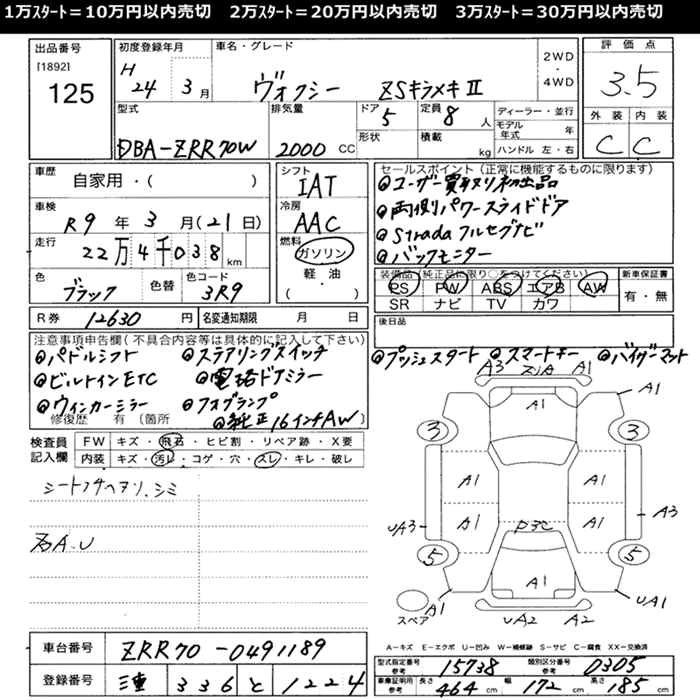 1万ｽﾀｰﾄ＝10万円以内売切　2万ｽﾀｰﾄ＝20万円以内売切　3万ｽﾀｰﾄ＝30万円以内売切
出品番号 初度登録年月 車名・グレード 2WD・4WD 評価点
[1892] 125 H24 3月 ヴォクシー ZSキラメキⅡ 3.5
型式 排気量 ドア 5 定員 8人 ディーラー・並行 外装 内装
形状 積載 kg モデル年式 年
DBA-ZRR70W 2000CC ハンドル 左・右 C C
車歴 自家用・( ) シフト IAT セールスポイント(正常に機能するものに限ります)
車検 R9年3月(21日) 冷房 AAC
走行 22万4千038km 燃料 ガソリン 軽油 ( )
◎ユーザー買取り初出品
◎両側パワースライドドア
◎Stradaフルセグナビ
◎バックモニター
色 ブラック 色替 色コード 3R9
装備品(純正品に限り○をつけてください) 新車保証書
PS PW ABS エアB AW 有・無
SR ナビ TV カワ
R券 12630円 名変通知期限 月 日 後日品
注意事項申告欄(不具合内容等は具体的に記入して下さい)
◎パドルシフト ◎ステアリングスイッチ ◎プッシュスタート ◎スマートキー ◎バイザーマット
◎ビルトインETC ◎電格ドアミラー
◎ウィンカーミラー ◎フォグランプ
修復歴 有 (箇所 ◎純正16インチAW)
検査員記入欄 FW キズ・飛石・ヒビ割・リペア跡・X要
内装 キズ・汚レ・コゲ・穴・スレ・キレ・破レ
A3 A1
A1 A1
3 3
A1 A1
UA3 A1 A1 A3
5 5
A1
A1 UA2 A2 UA1
スペア
A－キズ E－エクボ U－凹み W－補修跡 S－サビ C－腐食 XX－交換済
車台番号 ZRR70-0491189
型式指定番号 参考 15738 類別区分番号 参考 0305
登録番号 三重 336 と 1224
車庫証明用 参考 長さ 464cm 幅 172cm 高さ 185cm